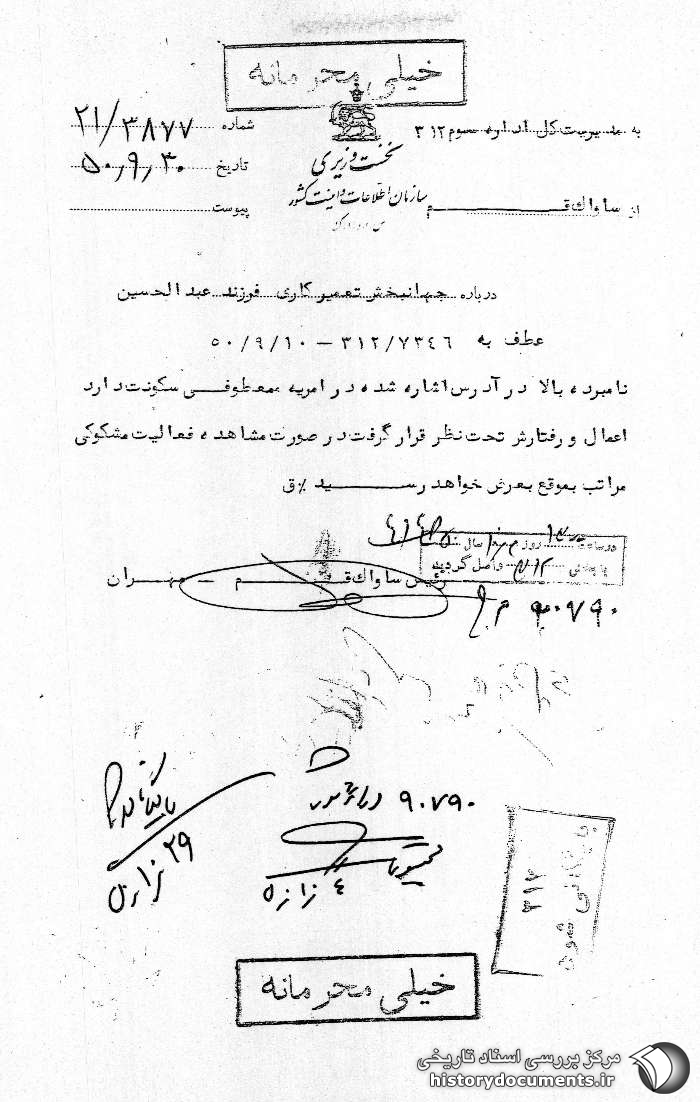 خیلی محرمانه
به مدیریت کل اداره سوم ۳۱۲
شماره ۲۱/۳۸۷۷
نخست وزیری
تاریخ ۵۰٫۹٫۳۰
سازمان اطلاعات و امنیت کشور
از ساواک قم
پیوست
س.ا.و.ا.ک
درباره جهانبخش تعمیرکاری فرزند عبدالحسین
عطف به ۳۱۲/۷۳۴۶ – ۵۰/۹/۱۰
نامبرده بالا در آدرس اشاره شده در امریه معطوفی سکونت دارد
اعمال و رفتارش تحت نظر قرار گرفت در صورت مشاهده فعالیت مشکوکی
مراتب بموقع بعرض خواهد رسید %ق
در ساعت روز سال
واصل گردید
رئیس ساواک قم – مهران
۹۰۷۹۰
۹۰۷۹۰
بایگانی شود
۳۱۲
خیلی محرمانه
مرکز بررسی اسناد تاریخی
historydocuments.ir